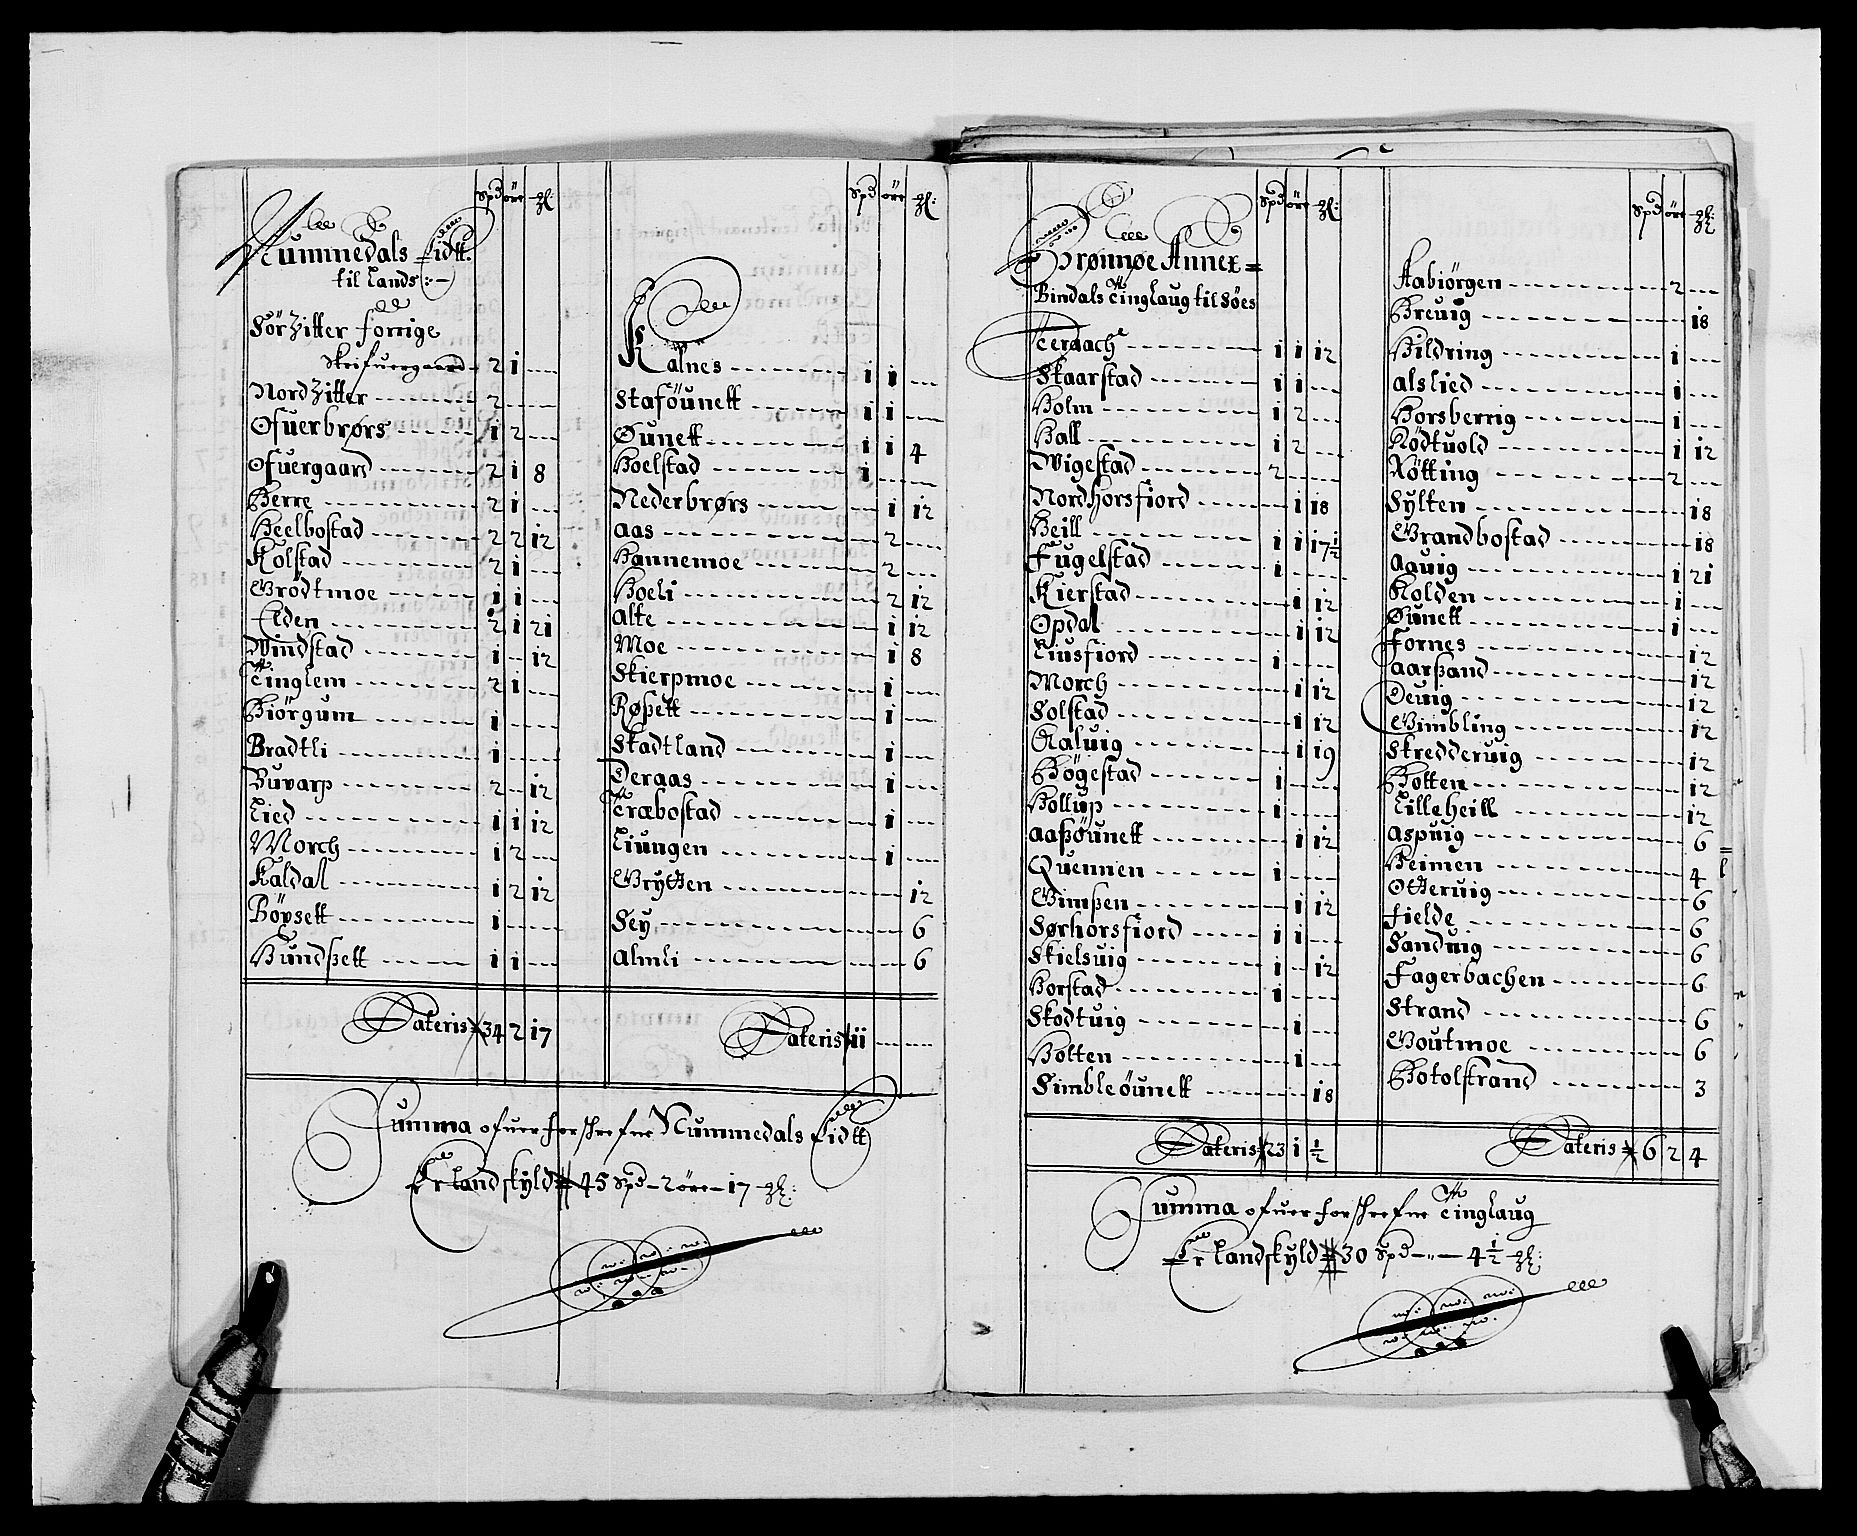 Spd öre ꝫl:
Nummedals Eidtt.
til Lands:-
Sörzitter forrige
Skrifuergaard - 2 1 ---
Nordzitter - 2 ---
Ofuerbrørs - 1 2 ---
Ofuergaard - 2 1 8
Herre - 2 1 ---
Heelbostad - 2 2 12
Kolstad - 2 1 ---
Grödtmoe - 1 1 ---
Elden - 2 1 21
Windstad - 1 - 12
Tinglem - 2 1 ---
Biörgum - 1 ---
Bradtli - 1 ---
Buvarp - 2 - 12
Lied - 1 1 12
Morch - 1 2 ---
Kaldal - 1 2 12
Böysett - 1 ---
Hundßett - 1 1 ---
Lateris 34 2 17
Spd öre ꝫl:
Kalnes - 1 1 ---
Staföunett - 1 1 ---
Øunett - 1 1 4
Hoelstad - 1 ---
Nederbrørs - 1 12
Aas - 2 ---
Hannemoe - 2 ---
Hoeli - 2 12
Alte - 1 12
Moe - 1 8
Skierpmoe - 1 ---
Røßett - 1 ---
Stadtland - 1 ---
Deraas - 1 ---
Træbostad - 1 ---
Liungen - 1 ---
Grytten - 12
Sey - 6
Almli - 6
Lateris 11 ---
Summa ofuerforschrefne Nummedals Eidtt
Er Landskyld 45 Spd - 2 öre - 17 ꝫl:
Spd öre ꝫl:
Brønnøe Annex=
Bindals Tinglaug til Söes
Teraach - 1 1 12
Skaarstad - 1 1 ---
Holm - 1 2 ---
Hall - 1 2 ---
Wigestad - 2 ---
Nordhorsfiord - 1 18
Heill - 1 1 17½
Fugelstad - 1 ---
Kierstad - 1 12
Opdal - 1 12
Liusfiord - 1 ---
Morch - 1 12
Solstad - 1 12
Kaluig - 1 19
Högestad - 1 ---
Hollup - 1 ---
Aaßöunett - 1 12
Quennen - 1 ---
Gimßen - 1 12
Sørhorsfiord - 1 1 ---
Skielsuig - 1 - 12
Horstad - 1 ---
Skodtuig - 1 ---
Holten - 1 ---
Simbleöunett - 18
Lateris 23 1 ½
Spd öre ꝫl:
Aabiörgen - 2 ---
Breuig - 18
Hildring - 1 ---
Alslied - 1 ---
Horsberrig - 1 ---
Rödtuold - 1 12
Nötting - 2 ---
Sylten - 18
Grandbostad - 18
Aauig - 1 21
Holden - 1 ---
Øunett - 1 ---
Fornes - 12
Aarßand - 12
Deuig - 12
Gimbling - 12
Skredderuig - 12
Holten - 12
Lilleheill - 12
Aspuig - 6
Heimen - 4
Otteruig - 6
Fielde - 6
Sanduig - 6
Fagerbachen - 6
Strand - 6
Goutmoe - 6
Hotolstrand - 3
Lateris 6 2 4
Summa ofuerforschrefne Tinglaug
Er Landskyld 30 Spd - " - 4½ ꝫl: